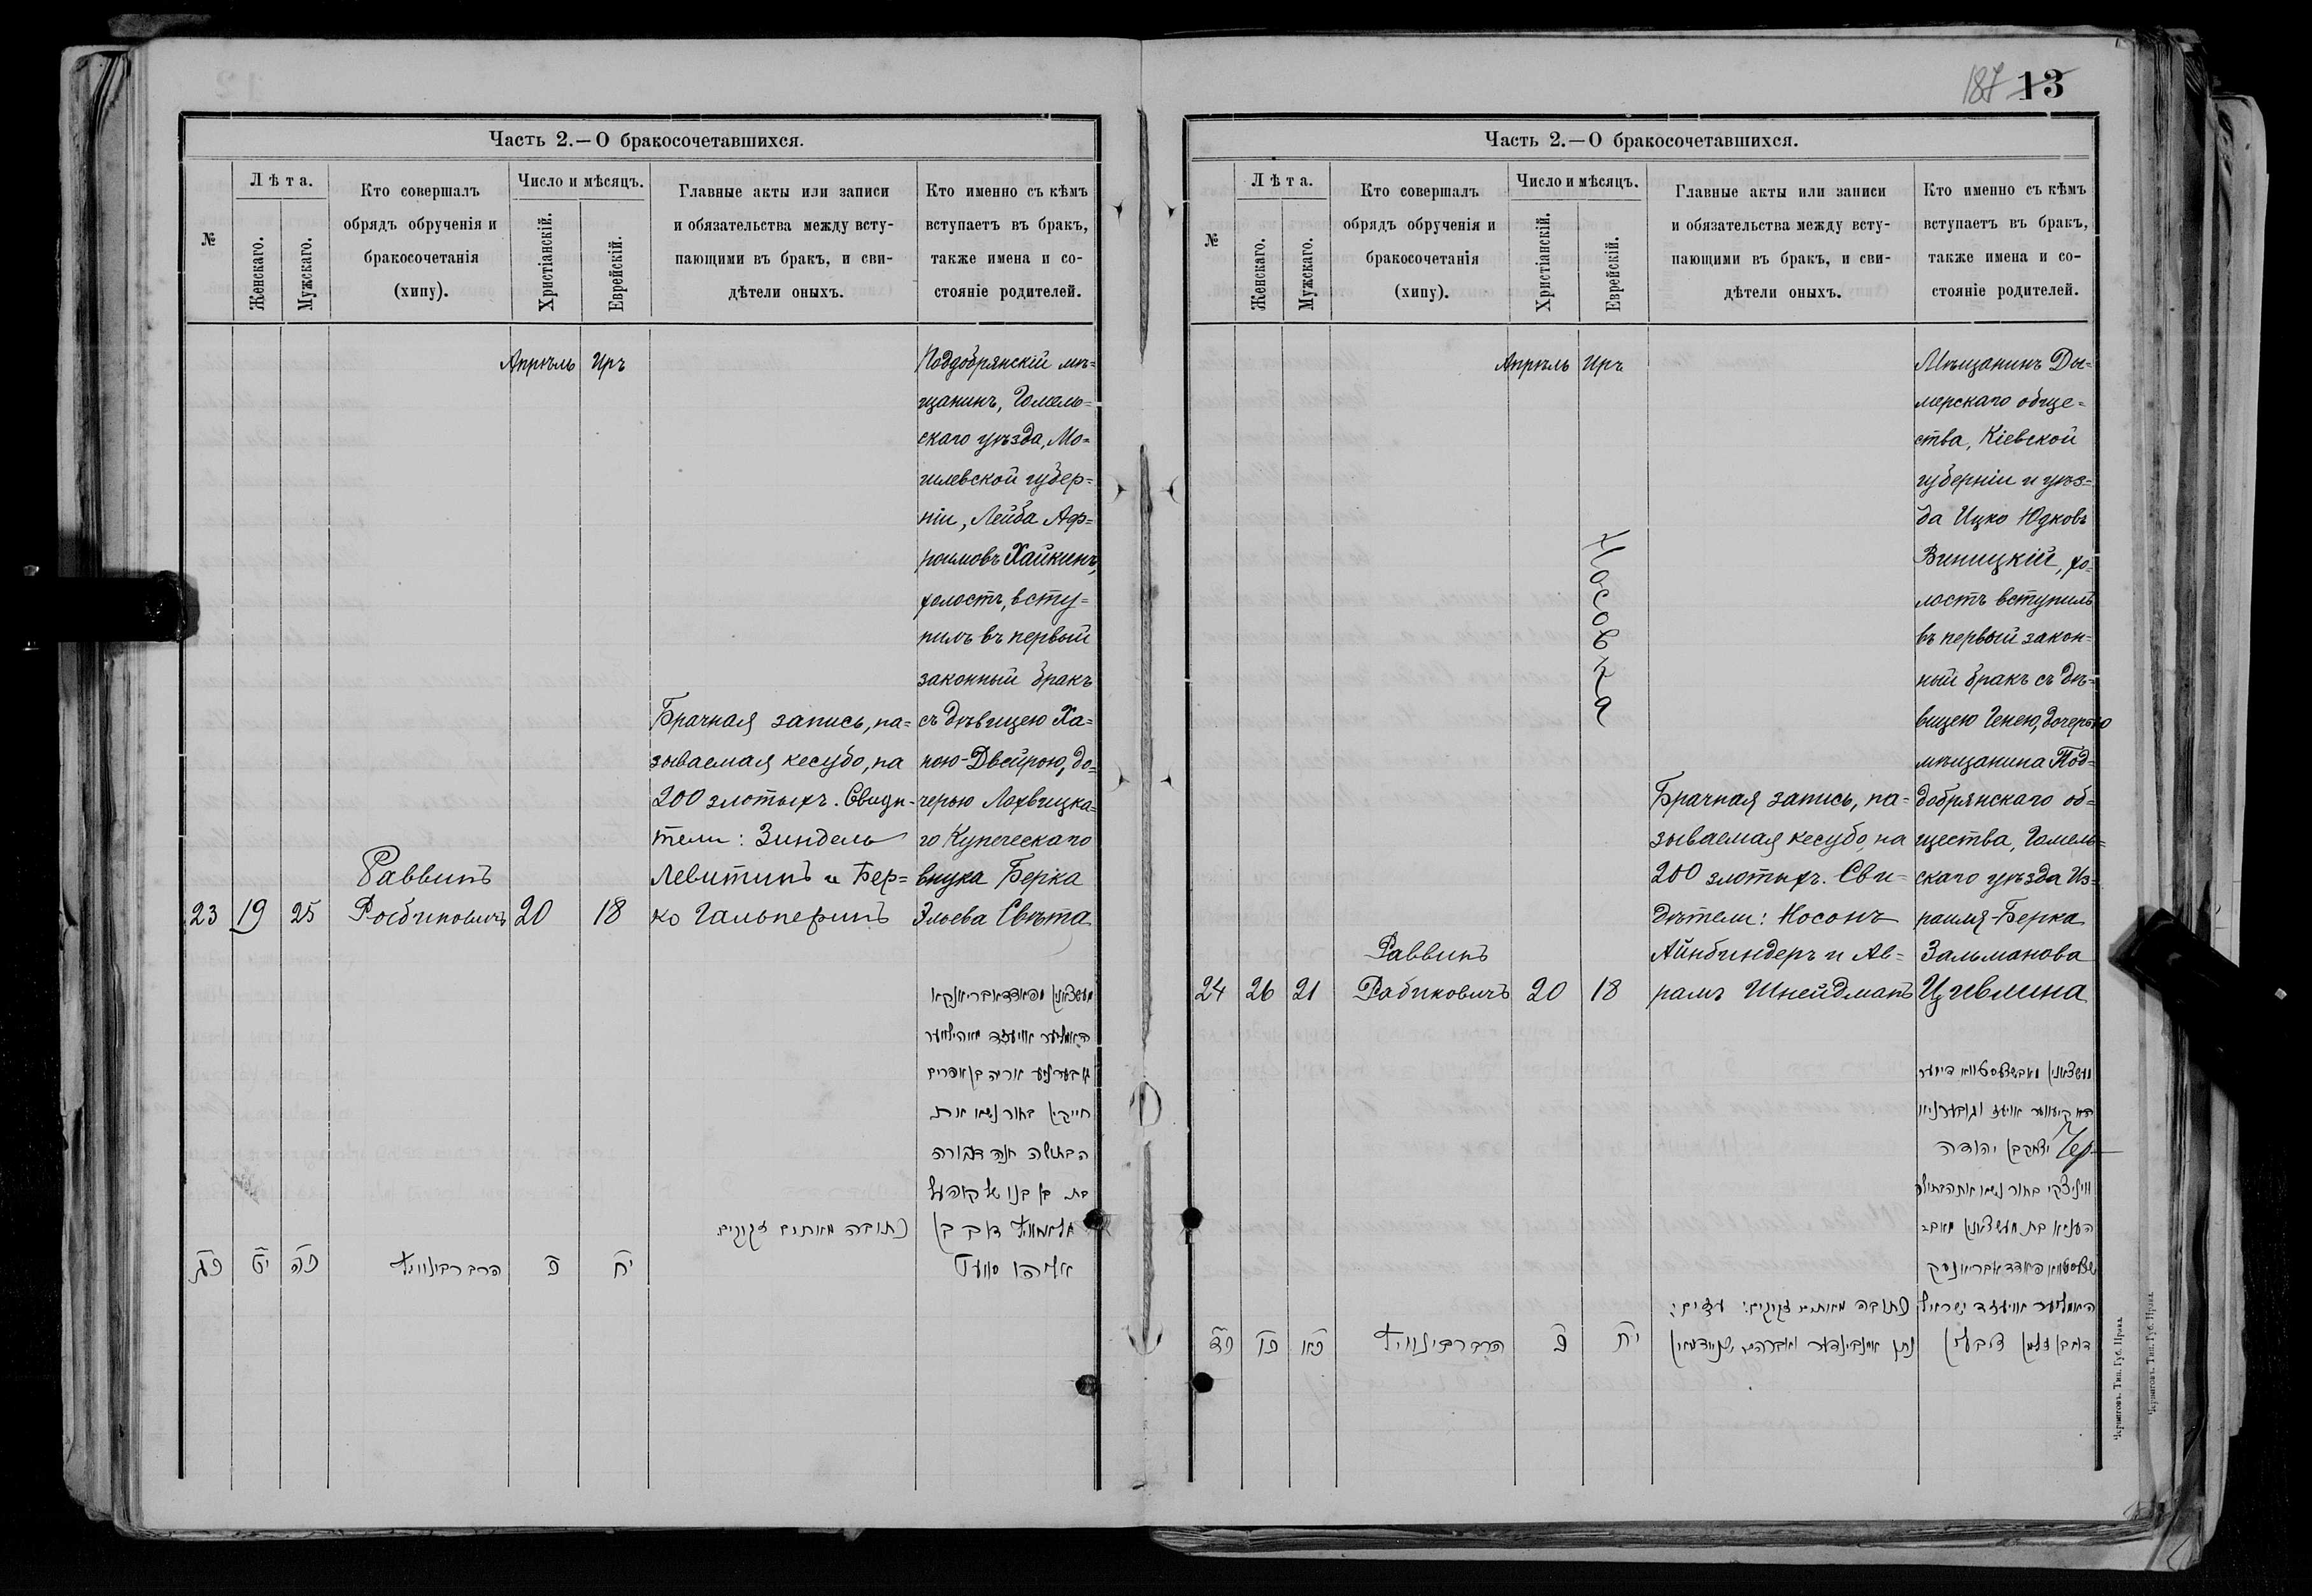 Часть 2.—О бракосочетавшихся.
№
Лѣта.
Женскаго.
Мужскаго.
Кто совершалъ
обрядъ обрученія и
бракосочетанія
(хипу).
Число и мѣсяцъ.
Христіанскій.
Еврейскій.
Главные акты или записи
и обязательства между всту-
пающими въ бракъ, и сви-
дѣтели оныхъ.
Кто именно съ кѣмъ
вступаетъ въ бракъ,
также имена и со-
стояніе родителей.
Апрѣль Иръ
23 19 25
Раввинъ
Рабиновичъ
20 18
Брачная запись, на-
зываемая кесубо, на
200 злотыхъ. Свидѣ-
тели: Зиндель
Левитинъ и Бер=
ко Гальперинъ
Поддобрянскій мѣ=
щанинъ, Гомель=
скаго уѣзда, Мо=
гилевской губер=
ніи, Лейба Аф=
роимовъ Хайкинъ,
холостъ, всту=
пилъ въ первый
законный бракъ
съ дѣвицею Ха=
ною-Двейрою, до=
черью Лохвицка=
го Купеческаго
внука Берка
Эльева Свѣта
חייקין בחור נשא את
הבתולה חנה דבורה
כתובה מאתים זקוקים
כג יט כה הרב רבינוויץ כ יח
187 13
Часть 2.—О бракосочетавшихся.
№
Лѣта.
Женскаго.
Мужскаго.
Кто совершалъ
обрядъ обрученія и
бракосочетанія
(хипу).
Число и мѣсяцъ.
Христіанскій.
Еврейскій.
Главные акты или записи
и обязательства между всту-
пающими въ бракъ, и сви-
дѣтели оныхъ.
Кто именно съ кѣмъ
вступаетъ въ бракъ,
также имена и со-
стояніе родителей.
Апрѣль Иръ
Носовка
24 26 21
Раввинъ
Рабиновичъ
20 18
Брачная запись, на-
зываемая кесубо, на
200 злотыхъ. Сви-
дѣтели: Носонъ
Айнбиндеръ и Ав=
рамъ Шнейдманъ
Мѣщанинъ Ды=
мерскаго обще=
ства, Кіевской
губерніи и уѣз=
да Ицко Юдковъ
Виницкій, хо=
лостъ вступилъ
въ первый закон=
ный бракъ съ дѣ=
вицею Генею, дочерью
мѣщанина Под=
добрянскаго об=
щества, Гомель=
скаго уѣзда Из=
раиля-Берка
Зальманова
Цивлина
יצחק בן יהודה
כתובה מאתים זקוקים: עדים:
כד כו כא הרב רבינוויץ כ יח
Черниговъ. Тип. Губ. Правл.
Черниговъ. Тип. Губ. Правл.